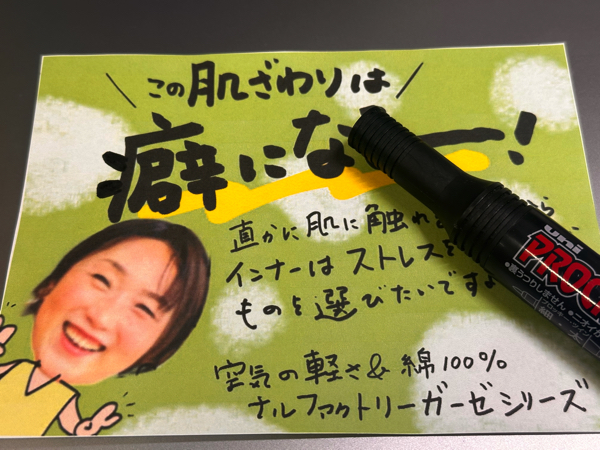 この肌ざわりは
癖にな ー!
直かに肌に触れ
インナーはストレスを
ものを選びたいですよ
空気の軽さ&綿100%
ナルファクトリーガーゼシリーズ
uni
PROC
●裏うつりしません ●ニオイが
細
太